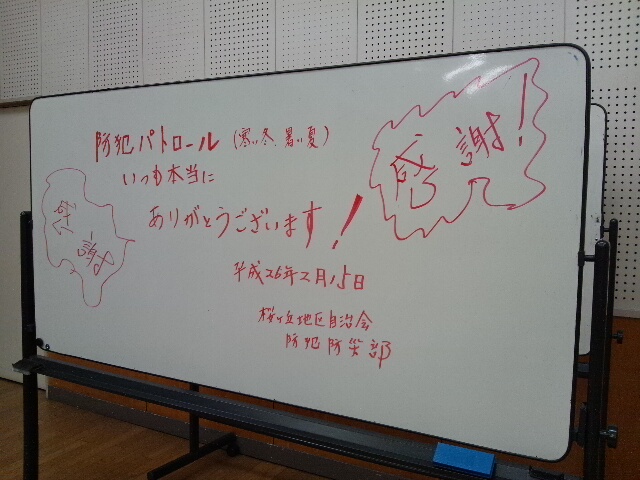 防犯パトロール（寒い冬、暑い夏）
いつも本当に
ありがとうございます！
感謝！
感謝
平成26年2月15日
桜ヶ丘地区自治会
防犯防災部